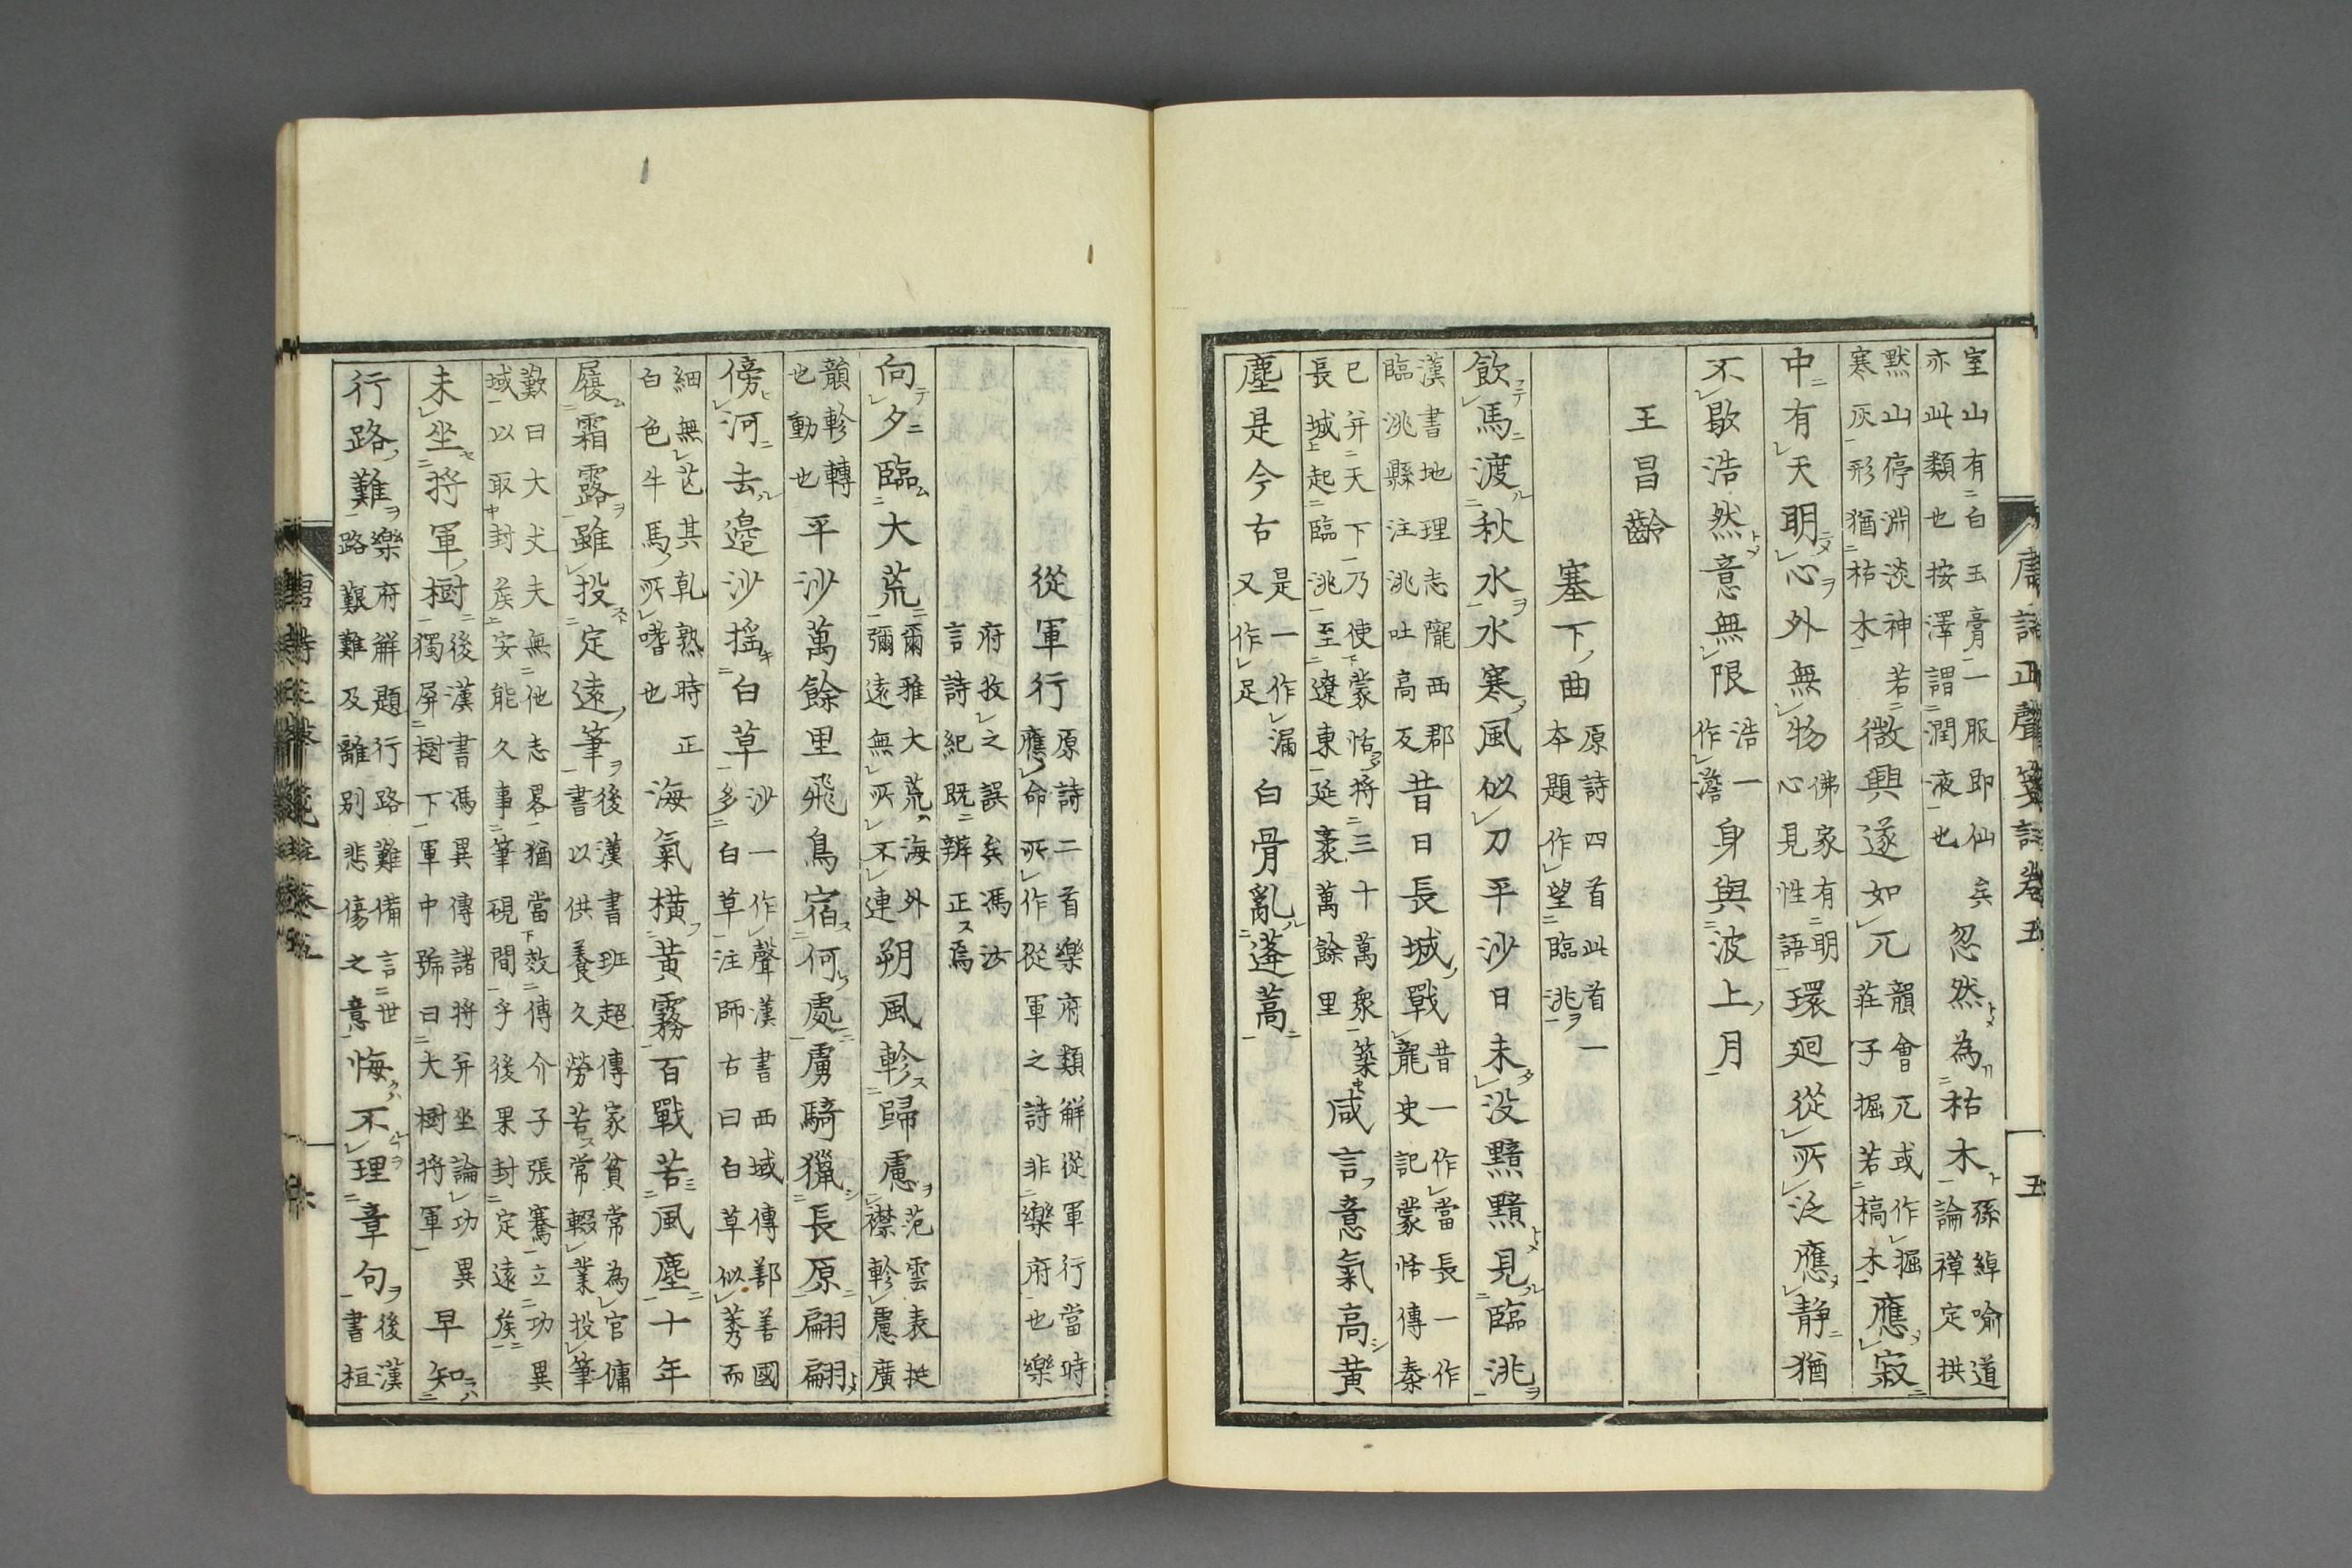 唐詩正聲箋註卷五　五
室山有白玉膏一服即仙矣
亦此類也按澤謂潤液也
忽然為枯木
孫綽喻道
論禪定拱
默山停淵淡神若
寒灰形猶枯木
微興遂如兀
韻會兀或作掘
莊子掘若槁木
應寂
中有天明心外無物
佛家有明
心見性語
環廻從所泛應静猶
不歇浩然意無限
浩一
作澹
身與波上月
王昌齡
塞下曲
原詩四首此首一
本題作望臨洮
飲馬渡秋水水寒風似刀平沙日未没黯黯見臨洮
漢書地理志隴西郡
臨洮縣注洮吐高反
昔日長城戰
昔一作當長一作
龍史記蒙恬傳秦
已并天下乃使蒙恬将三十萬衆築
長城起臨洮至遼東延袤萬餘里
咸言意氣高黄
塵是今古
是一作漏
又作足
白骨亂蓬蒿
從軍行
原詩二首樂府類解從軍行當時
應命所作從軍之詩非樂府也樂
府攷之誤矣馮汝
言詩紀既辨正焉
向夕臨大荒
爾雅大荒海外
彌遠無所不連
朔風軫歸慮
范雲表挺
襟軫慮廣
韻軫轉
也動也
平沙萬餘里飛鳥宿何處虜騎獵長原翩翩
傍河去邉沙揺白草
沙一作聲漢書西域傳鄯善國
多白草注師古曰白草似莠而
細無芒其乾熟時正
白色牛馬所嗜也
海氣横黄霧百戰苦風塵十年
履霜露雖投定遠筆
後漢書班超傳家貧常為官傭
書以供養久勞苦常輟業投筆
歎曰大丈夫無他志畧猶當效傳介子張騫立功異
域以取封矦安能久事筆硯間乎後果封定遠矦
未坐将軍樹
後漢書馮異傳諸将并坐論功異
獨屏樹下軍中號曰大樹将軍
早知
行路難
樂府解題行路難備言世
路艱難及離别悲傷之意
悔不理章句
後漢
書桓